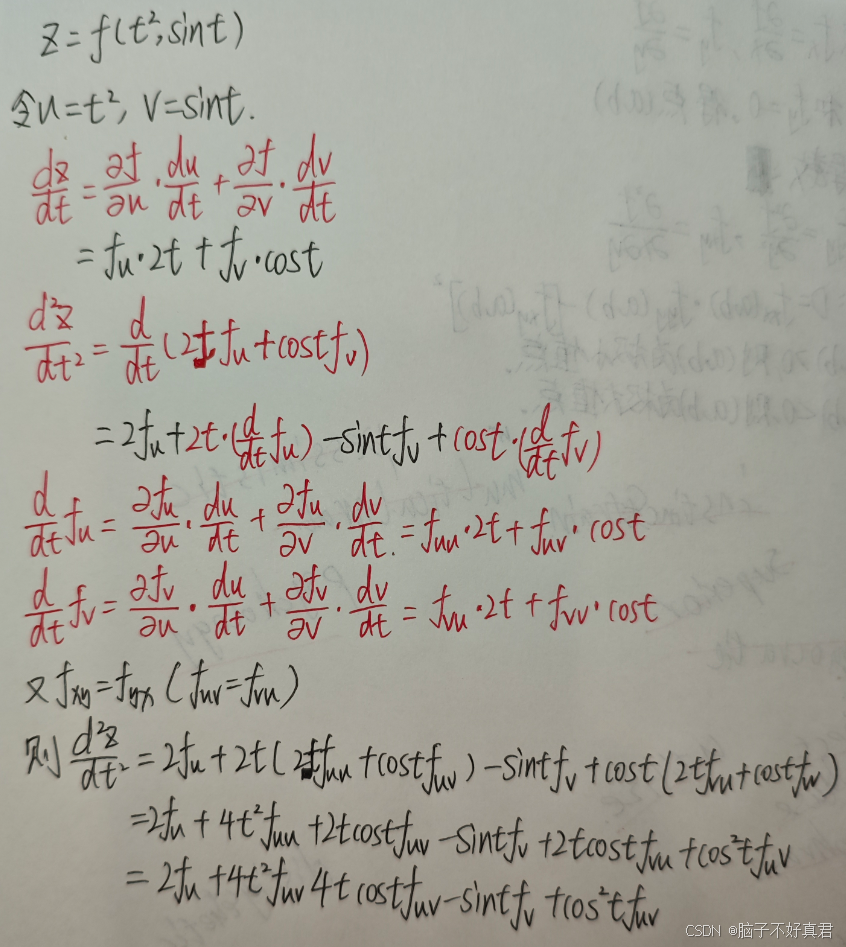 z=f(t²,sint)
令u=t², v=sint.
dz/dt = ∂f/∂u · du/dt + ∂f/∂v · dv/dt
= fu·2t + fv·cost
d²z/dt² = d/dt (2t fu + cost fv)
= 2fu + 2t·(d/dt fu) - sint fv + cost·(d/dt fv)
d/dt fu = ∂fu/∂u · du/dt + ∂fu/∂v · dv/dt. = fuu·2t + fuv·cost
d/dt fv = ∂fv/∂u · du/dt + ∂fv/∂v · dv/dt = fvu·2t + fvv·cost
又 fxy = fyx (fuv = fvu)
则 d²z/dt² = 2fu + 2t(2t fuu + cost fuv) - sint fv + cost(2t fvu + cost fvv)
= 2fu + 4t² fuu + 2t cost fuv - sint fv + 2t cost fvu + cos²t fuv
= 2fu + 4t² fuv 4t cost fuv - sint fv + cos²t fuv
CSDN @脑子不好真君